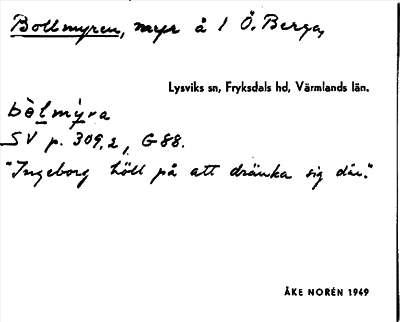 Bollmyren, myr å 1 Ö. Berga,
Lysviks sn, Fryksdals hd, Värmlands län.
bòlmýra
SV p. 309,2, G 88.
"Ingeborg höll på att dränka sig där."
ÅKE NORÉN 1949